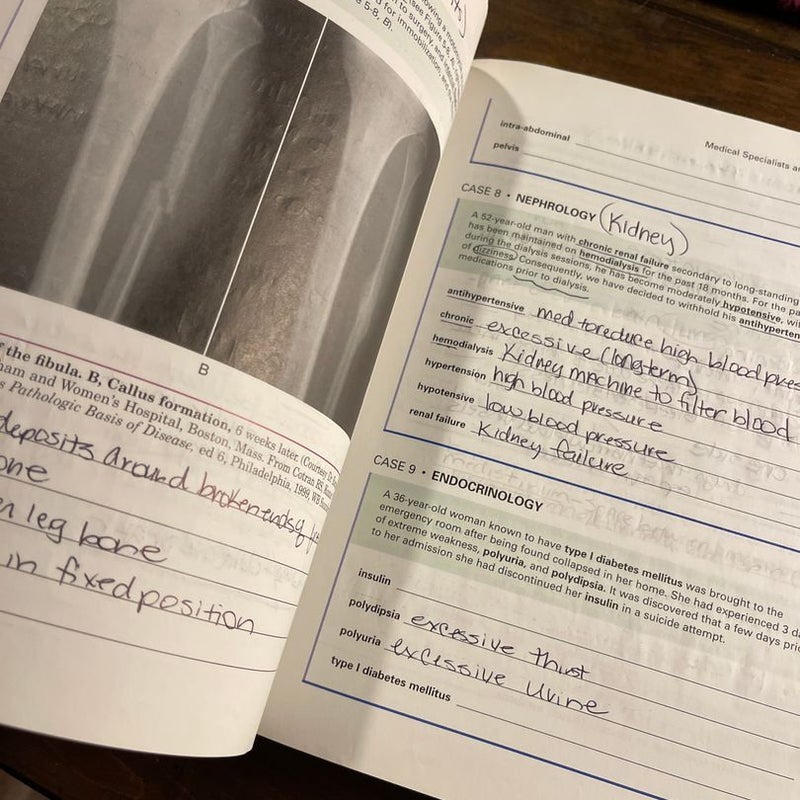 B
f the fibula. B, Callus formation, 6 weeks later. (Courtesy
ham and Women's Hospital, Boston, Mass. From Cotran RS
s Pathologic Basis of Disease, ed 6, Philadelphia, 1999, WB
deposits around broken ends of
one
leg bone
in fixed position
for immobilization, and
5-8, B).
intra-abdominal
Medical Specialists
pelvis
CASE 8 • NEPHROLOGY (Kidney)
A 52-year-old man with chronic renal failure secondary to long-standing
has been maintained on hemodialysis for the past 18 months. For the
during the dialysis sessions, he has become moderately hypotensive,
of dizziness. Consequently, we have decided to withhold his antihyperten
medications prior to dialysis.
antihypertensive med to reduce high blood pres
chronic excessive (longterm)
hemodialysis Kidney machine to filter blood
hypertension high blood pressure
hypotensive low blood pressure
renal failure Kidney failure
CASE 9 • ENDOCRINOLOGY
A 36-year-old woman known to have type I diabetes mellitus was brought to the
emergency room after being found collapsed in her home. She had experienced 3 d
of extreme weakness, polyuria, and polydipsia. It was discovered that a few days prio
to her admission she had discontinued her insulin in a suicide attempt.
insulin
polydipsia excessive thirst
polyuria excessive urine
type I diabetes mellitus